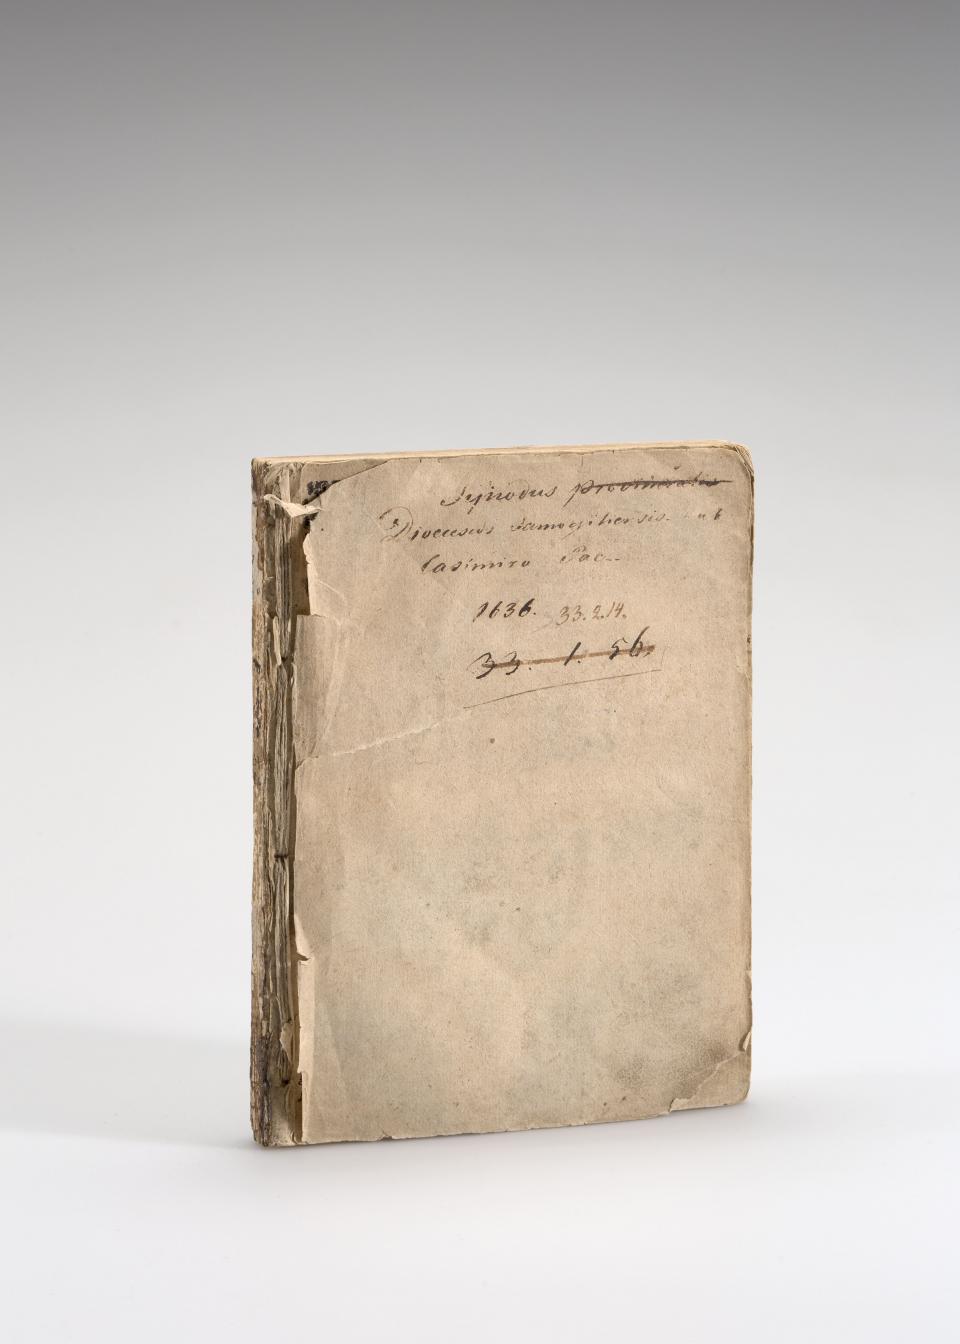 Synodus provincialis
Dioecesis Samogitiensis sub
Casimiro Pac
1636. 33.2.14.
33. 1. 56.